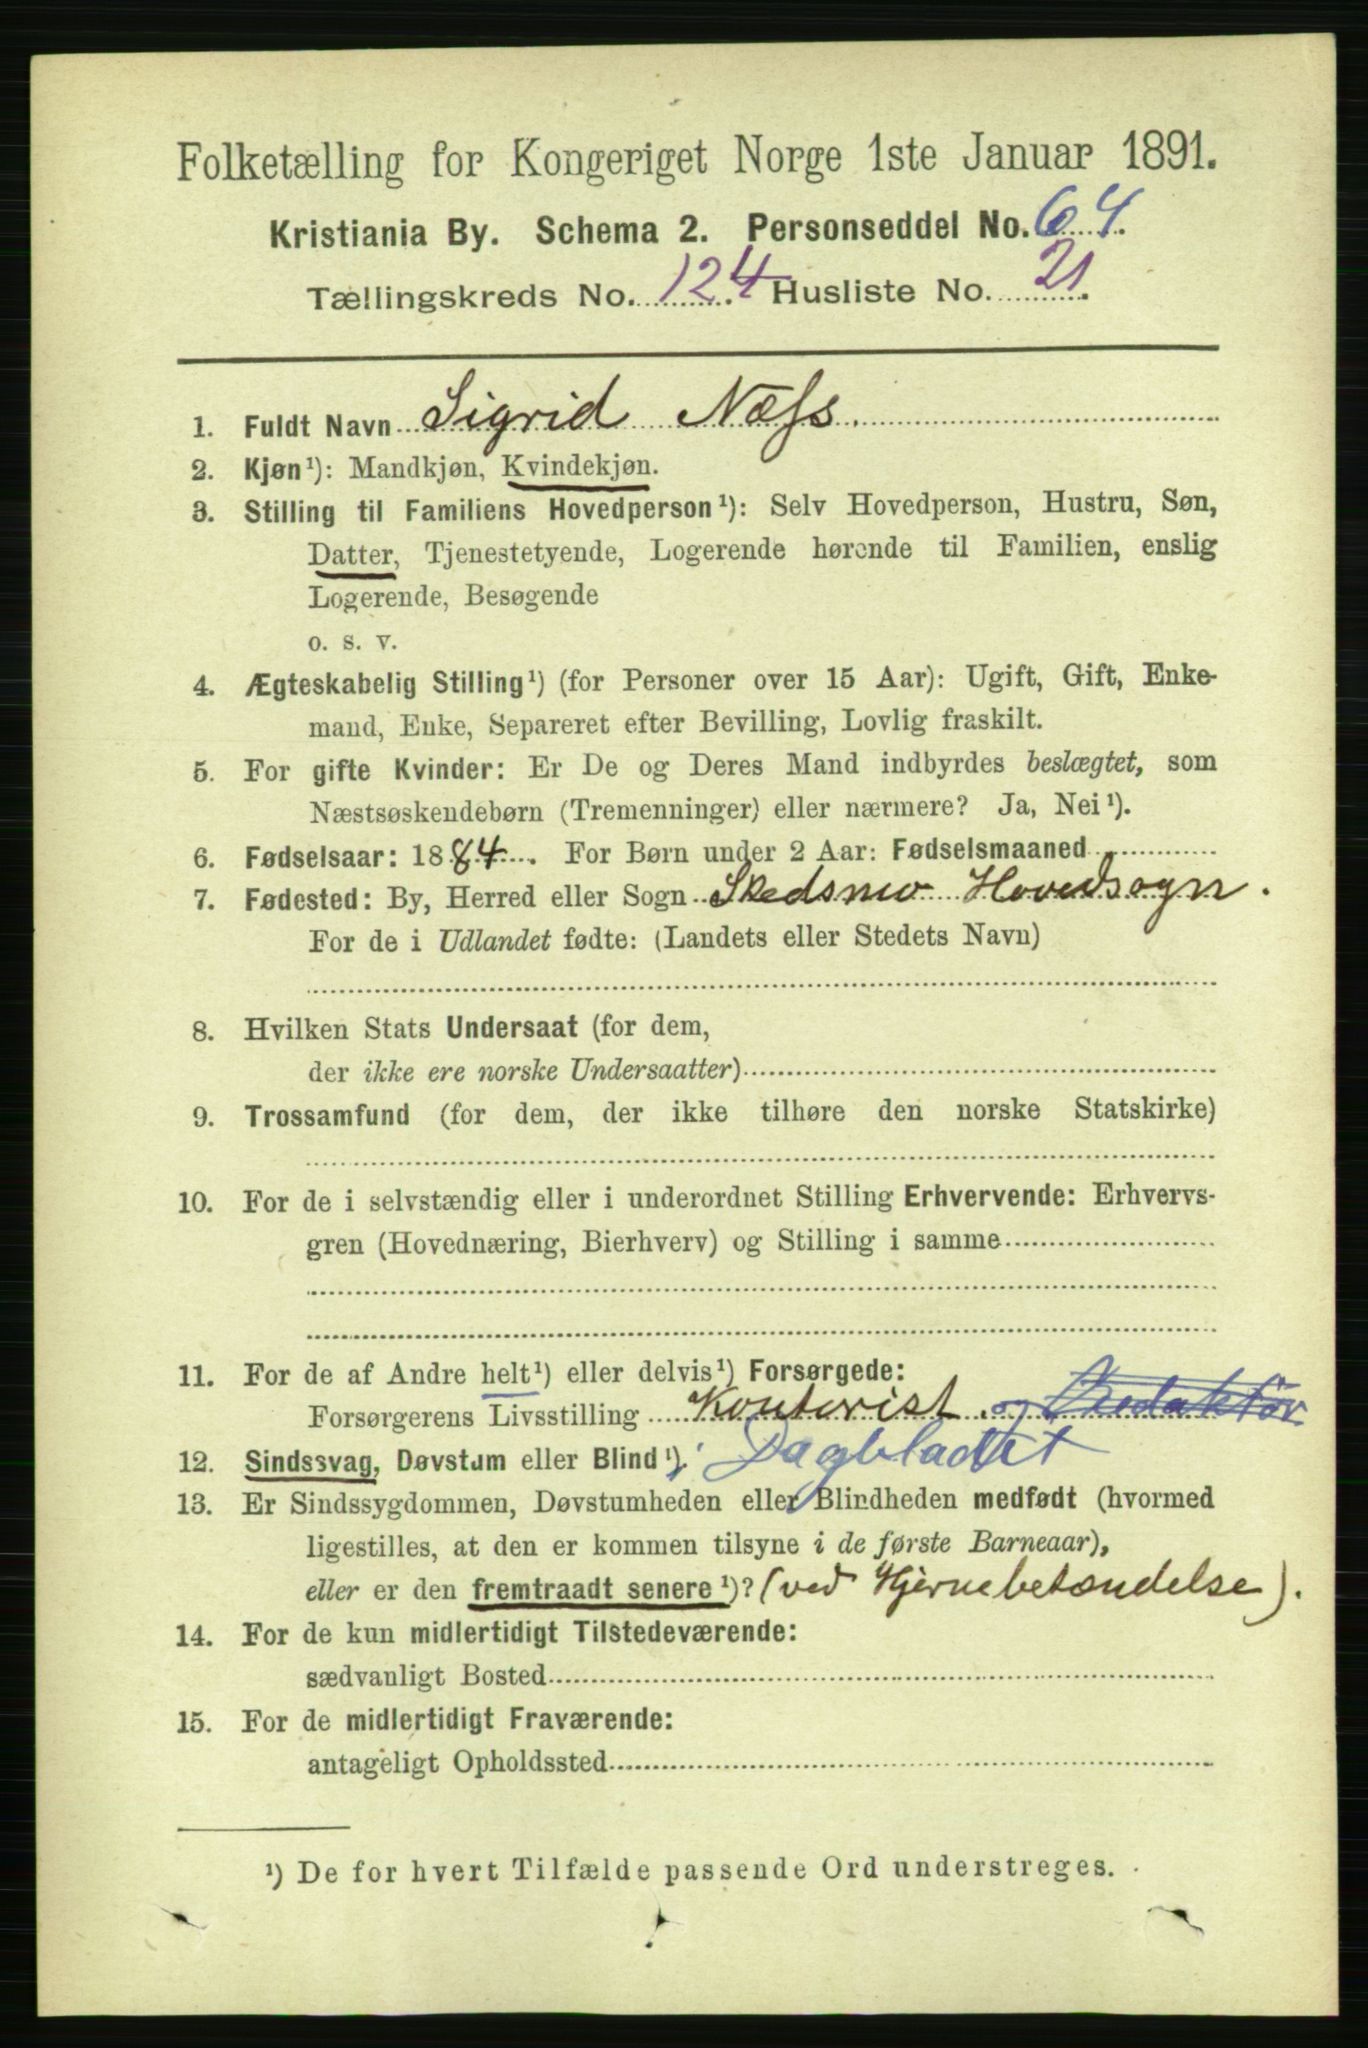 Folketælling for Kongeriget Norge 1ste Januar 1891.
Kristiania By. Schema 2. Personseddel No. 64.
Tællingskreds No. 124 Husliste No. 21.
1. Fuldt Navn Sigrid Næss.
2. Kjøn¹): Mandkjøn, Kvindekjøn.
3. Stilling til Familiens Hovedperson¹): Selv Hovedperson, Hustru, Søn,
Datter, Tjenestetyende, Logerende hørende til Familien, enslig
Logerende, Besøgende
o. s. v.
4. Ægteskabelig Stilling¹) (for Personer over 15 Aar): Ugift, Gift, Enke-
mand, Enke, Separeret efter Bevilling, Lovlig fraskilt.
5. For gifte Kvinder: Er De og Deres Mand indbyrdes beslægtet, som
Næstsøskendebørn (Tremenninger) eller nærmere? Ja, Nei¹).
6. Fødselsaar: 1884. For Børn under 2 Aar: Fødselsmaaned
7. Fødested: By, Herred eller Sogn Skedsmo Hovedsogn.
For de i Udlandet fødte: (Landets eller Stedets Navn)
8. Hvilken Stats Undersaat (for dem,
der ikke ere norske Undersaatter)
9. Trossamfund (for dem, der ikke tilhøre den norske Statskirke)
10. For de i selvstændig eller i underordnet Stilling Erhvervende: Erhvervs-
gren (Hovednæring, Bierhverv) og Stilling i samme
11. For de af Andre helt¹) eller delvis¹) Forsørgede:
Forsørgerens Livsstilling Kontorist. og Redaktör
12. Sindssvag, Døvstum eller Blind¹). Dagbladet
13. Er Sindssygdommen, Døvstumheden eller Blindheden medfødt (hvormed
ligestilles, at den er kommen tilsyne i de første Barneaar),
eller er den fremtraadt senere¹)? (ved Hjernebetændelse).
14. For de kun midlertidigt Tilstedeværende:
sædvanligt Bosted
15. For de midlertidigt Fraværende:
antageligt Opholdssted
¹) De for hvert Tilfælde passende Ord understreges.